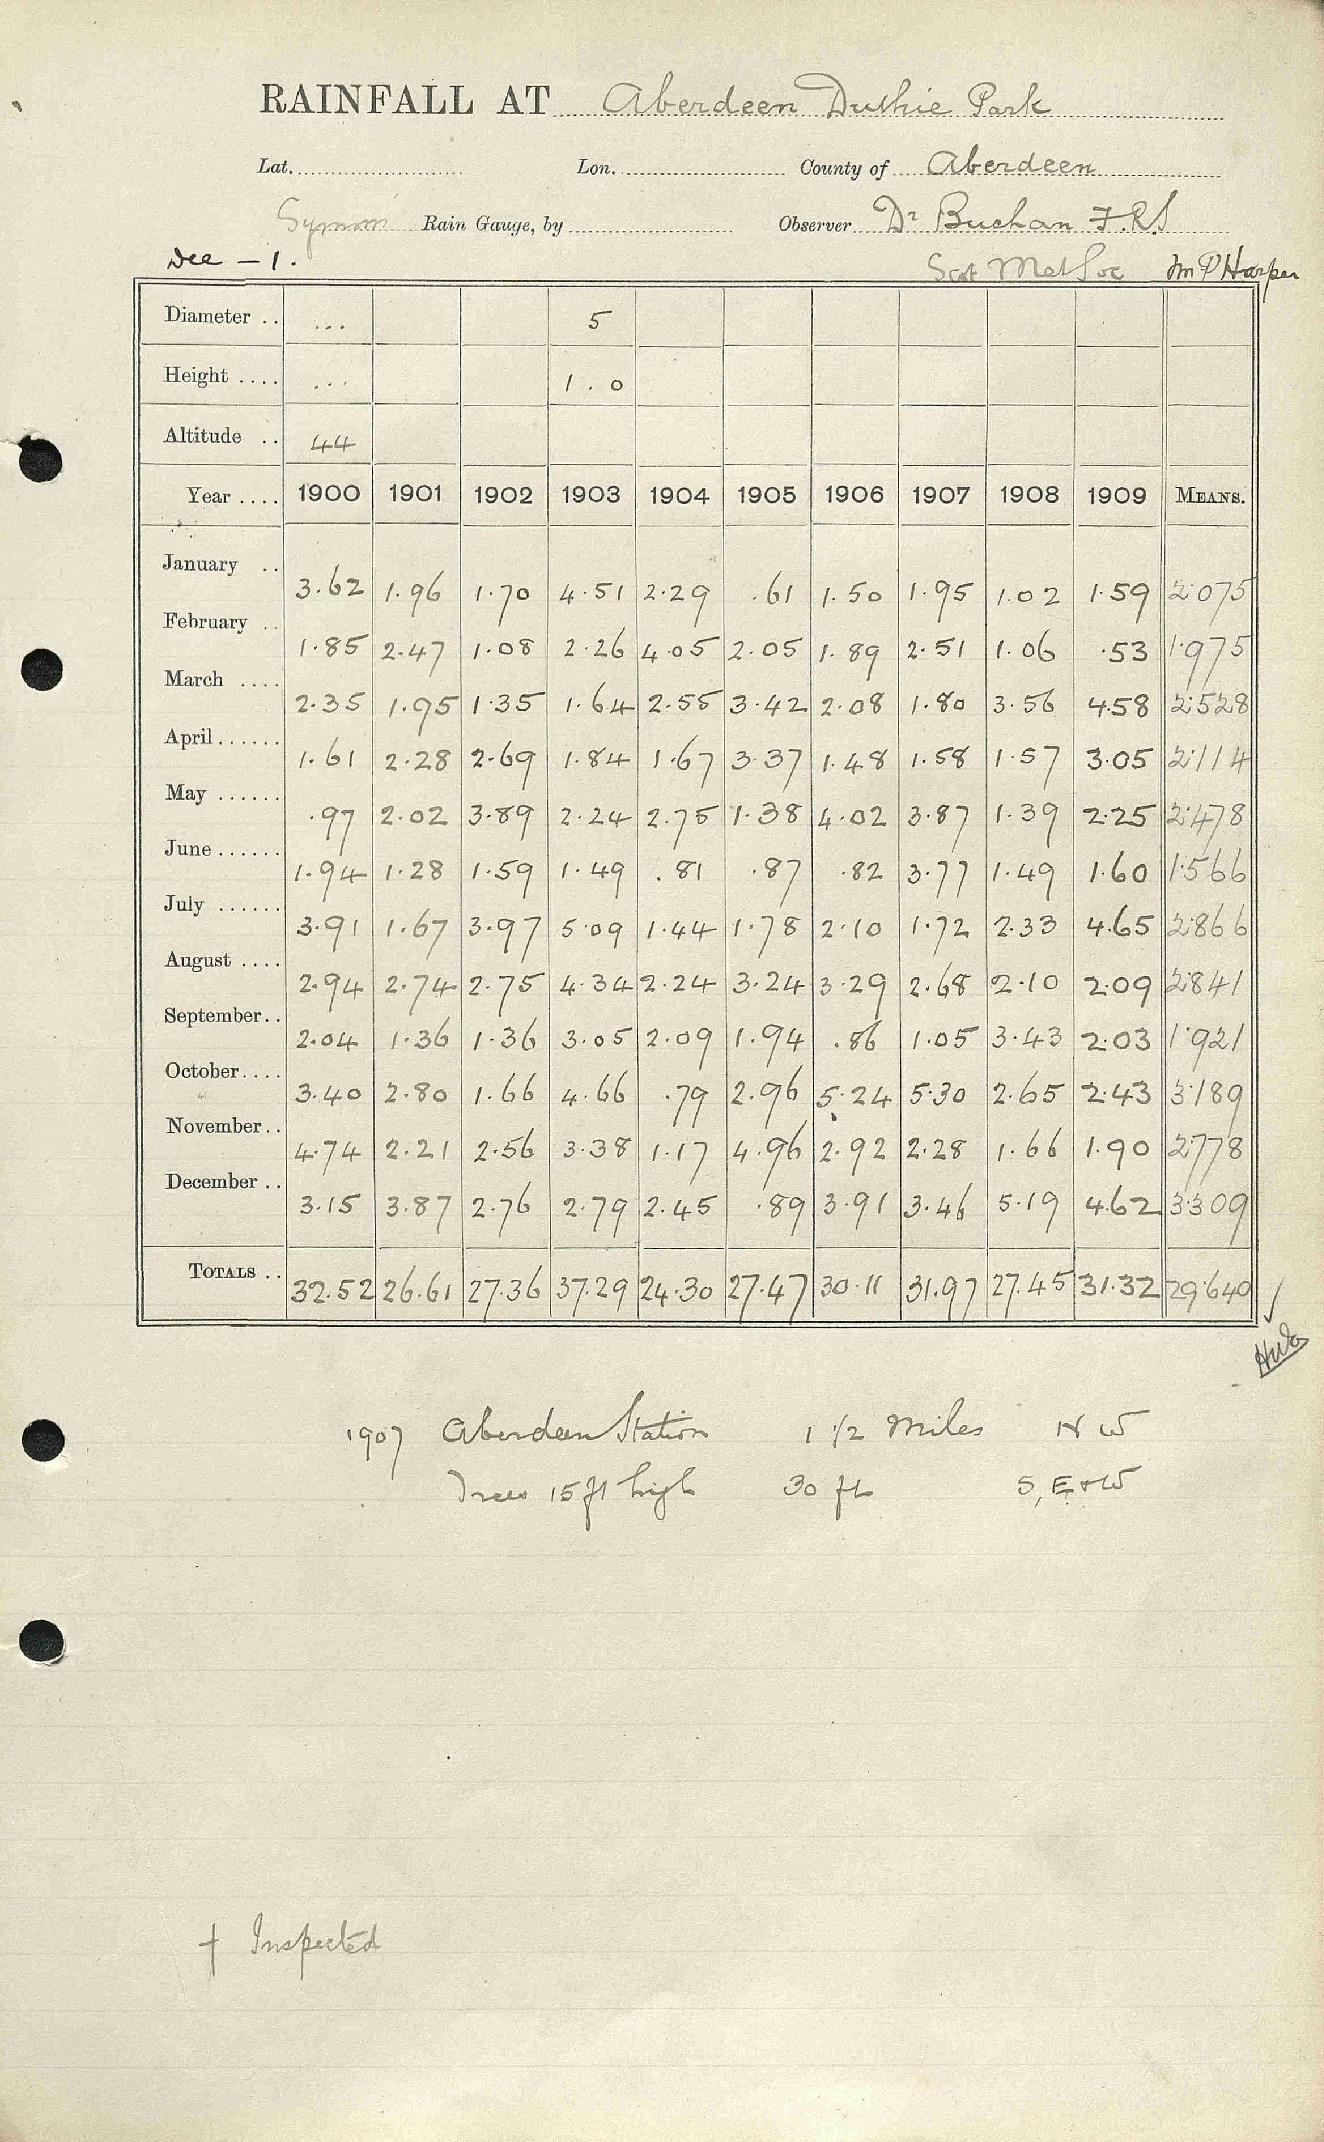 RAINFALL AT Aberdeen Duthie Park
Lat. Lon. County of Aberdeen
Symons Rain Gauge, by Observer Dr Buchan F.R.S
Dee – 1. Scot Met Soc Harper
Diameter .. ... 5
Height .... ... 1.0
Altitude .. 44
Year .... 1900 1901 1902 1903 1904 1905 1906 1907 1908 1909 MEANS.
January .. 3.62 1.96 1.70 4.51 2.29 .61 1.50 1.95 1.02 1.59 2.075
February .. 1.85 2.47 1.08 2.26 4.05 2.05 1.89 2.51 1.06 .53 1.975
March .... 2.35 1.95 1.35 1.64 2.55 3.42 2.08 1.80 3.56 4.58 2.528
April...... 1.61 2.28 2.69 1.84 1.67 3.37 1.48 1.58 1.57 3.05 2.114
May ...... .97 2.02 3.89 2.24 2.75 1.38 4.02 3.87 1.39 2.25 2.478
June...... 1.94 1.28 1.59 1.49 .81 .87 .82 3.77 1.49 1.60 1.566
July ...... 3.91 1.67 3.97 5.09 1.44 1.78 2.10 1.72 2.33 4.65 2.866
August .... 2.94 2.74 2.75 4.34 2.24 3.24 3.29 2.68 2.10 2.09 2.841
September.. 2.04 1.36 1.36 3.05 2.09 1.94 .86 1.05 3.43 2.03 1.921
October.... 3.40 2.80 1.66 4.66 .79 2.96 5.24 5.30 2.65 2.43 3.189
November.. 4.74 2.21 2.56 3.38 1.17 4.96 2.92 2.28 1.66 1.90 2.778
December .. 3.15 3.87 2.76 2.79 2.45 .89 3.91 3.46 5.19 4.62 3.309
TOTALS .. 32.52 26.61 27.36 37.29 24.30 27.47 30.11 31.97 27.45 31.32 29.640 ✓
1907 Aberdeen Station 1 1/2 Miles N W
Trees 15 ft high 30 ft S, E + W
† Inspected